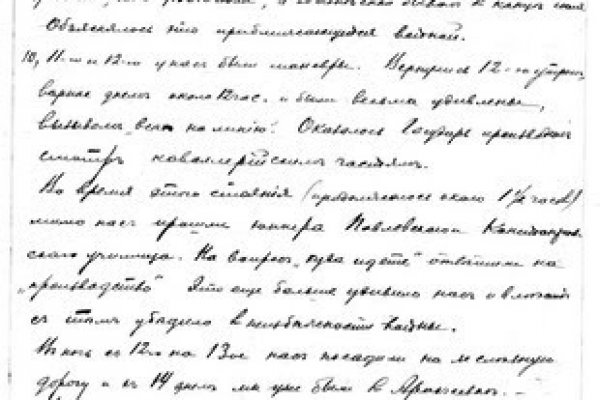 Объяснялось это приближающейся войной.
10, 11-го и 12-го у нас были маневры. Вернулись 12-го утром,
вернее днем около 12 час. и были весьма удивлены,
вызывом „всех на линию". Оказалось Государь производит
смотр кавалерийским частям.
Во время этого стояния (продолжалось около 1½ часов)
мимо нас прошли юнкера Павловского
ского училища. На вопрос „куда идете" ответили на
„производство" Это еще больше удивило нас и
с тем убедило в неизбежности войны.
В ночь с 12-го на 13-ое нас посадили на железную
дорогу и в 14 днем мы уже были в